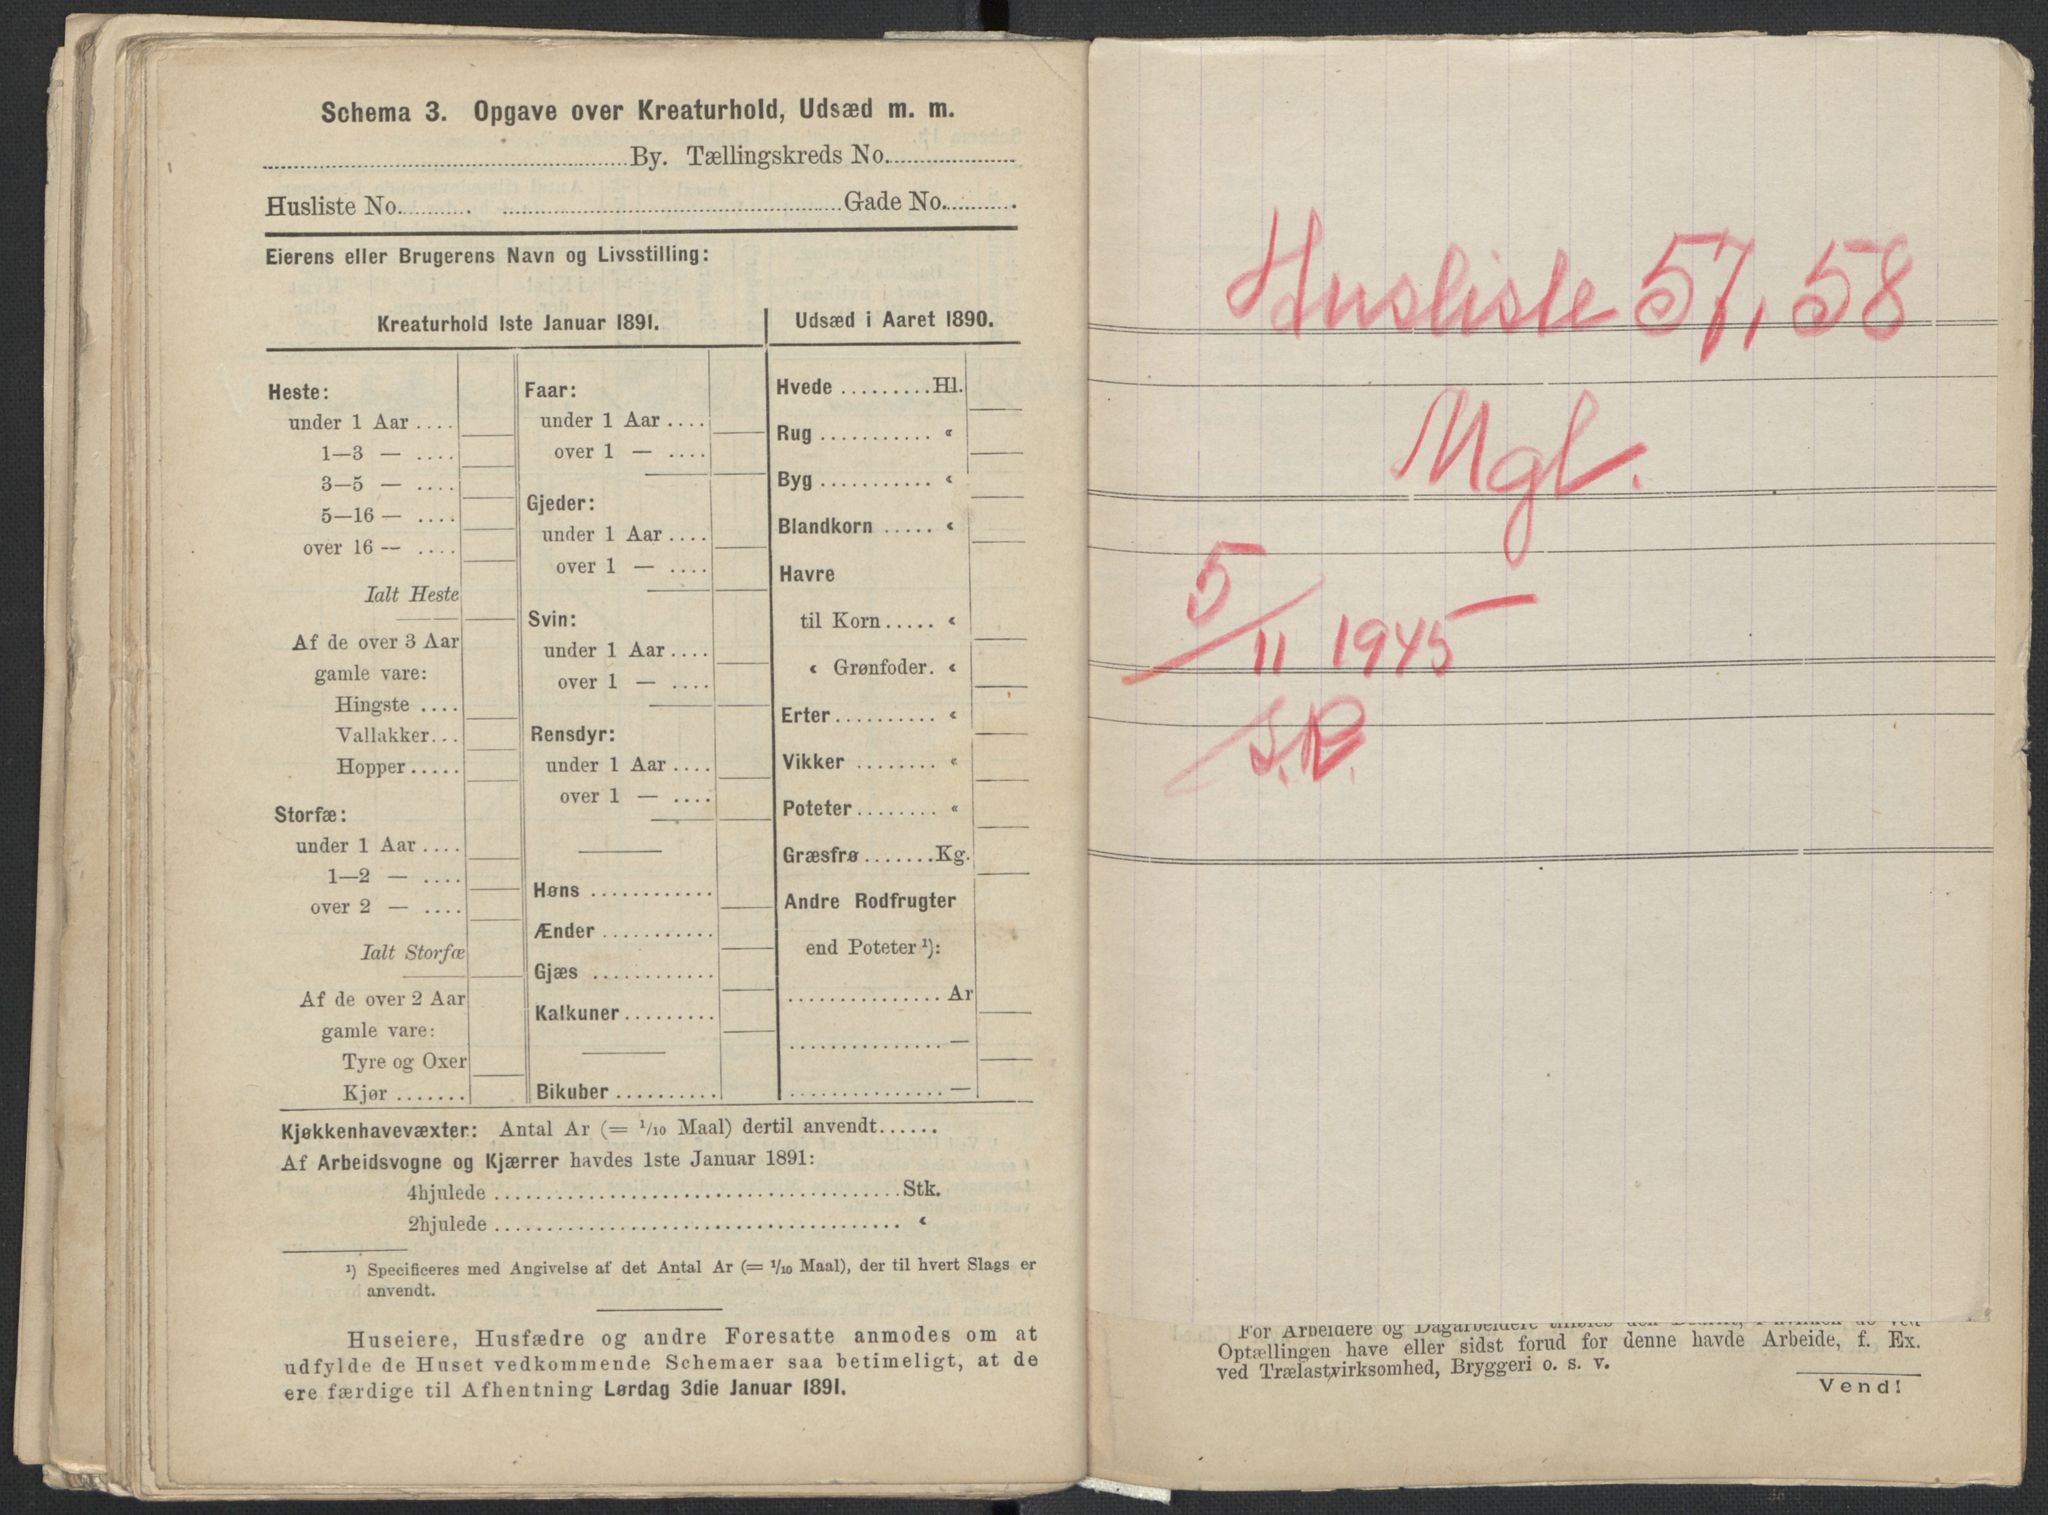 Schema 3. Opgave over Kreaturhold, Udsæd m. m.
By. Tællingskreds No.
Husliste No. Gade No.
Eierens eller Brugerens Navn og Livsstilling:
Kreaturhold 1ste Januar 1891.
Heste:
under 1 Aar ....
1—3 — ....
3—5 — ....
5—16 — ....
over 16 — ....
Ialt Heste
Af de over 3 Aar
gamle vare:
Hingste ....
Vallakker...
Hopper.....
Storfæ:
under 1 Aar ....
1—2 — ....
over 2 — ....
Ialt Storfæ
Af de over 2 Aar
gamle vare:
Tyre og Oxer
Kjør .......
Faar:
under 1 Aar ....
over 1 — ....
Gjeder:
under 1 Aar ....
over 1 — ....
Svin:
under 1 Aar ....
over 1 — ....
Rensdyr:
under 1 Aar ....
over 1 — ....
Høns ............
Ænder ...........
Gjæs ............
Kalkuner .........
Bikuber ..........
Udsæd i Aaret 1890.
Hvede .........Hl.
Rug ........... «
Byg ........... «
Blandkorn ..... «
Havre
til Korn ..... «
« Grønfoder. «
Erter .......... «
Vikker ........ «
Poteter ........ «
Græsfrø .......Kg.
Andre Rodfrugter
end Poteter ¹):
............... Ar
............... —
............... —
Kjøkkenhavevæxter: Antal Ar (= 1/10 Maal) dertil anvendt......
Af Arbeidsvogne og Kjærrer havdes 1ste Januar 1891:
4hjulede ........................................Stk.
2hjulede ........................................ «
¹) Specificeres med Angivelse af det Antal Ar (= 1/10 Maal), der til hvert Slags er
anvendt.
Huseiere, Husfædre og andre Foresatte anmodes om at
udfylde de Huset vedkommende Schemaer saa betimeligt, at de
ere færdige til Afhentning Lørdag 3die Januar 1891.
Husliste 57, 58
Mgl.
5/11 1945
For Arbeidere og Dagarbeidere tilføies den Bedrift, i hvilken de ved
Optællingen have eller sidst forud for denne havde Arbeide, f. Ex.
ved Trælastvirksomhed, Bryggeri o. s. v.
Vend!